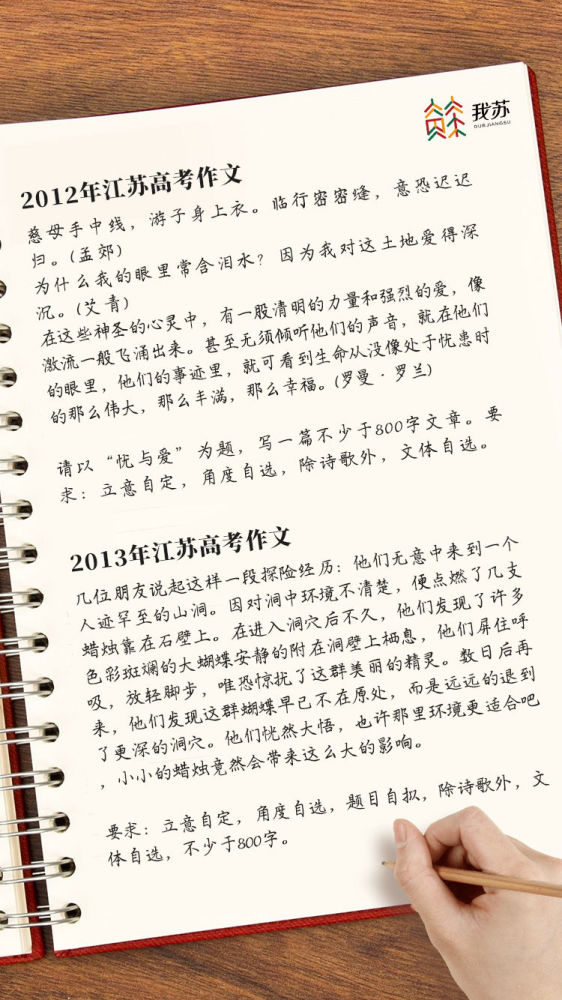 我苏
OURJIANGSU
2012年江苏高考作文
慈母手中线，游子身上衣。临行密密缝，意恐迟迟
归。(孟郊)
为什么我的眼里常含泪水？因为我对这土地爱得深
沉。(艾青)
在这些神圣的心灵中，有一股清明的力量和强烈的爱，像
激流一般飞涌出来。甚至无须倾听他们的声音，就在他们
的眼里，他们的事迹里，就可看到生命从没像处于忧患时
的那么伟大，那么丰满，那么幸福。(罗曼·罗兰)
请以“忧与爱”为题，写一篇不少于800字文章。要
求：立意自定，角度自选，除诗歌外，文体自选。
2013年江苏高考作文
几位朋友说起这样一段探险经历：他们无意中来到一个
人迹罕至的山洞。因对洞中环境不清楚，便点燃了几支
蜡烛靠在石壁上。在进入洞穴后不久，他们发现了许多
色彩斑斓的大蝴蝶安静的附在洞壁上栖息，他们屏住呼
吸，放轻脚步，唯恐惊扰了这群美丽的精灵。数日后再
来，他们发现这群蝴蝶早已不在原处，而是远远的退到
了更深的洞穴。他们恍然大悟，也许那里环境更适合吧
，小小的蜡烛竟然会带来这么大的影响。
要求：立意自定，角度自选，题目自拟，除诗歌外，文
体自选，不少于800字。